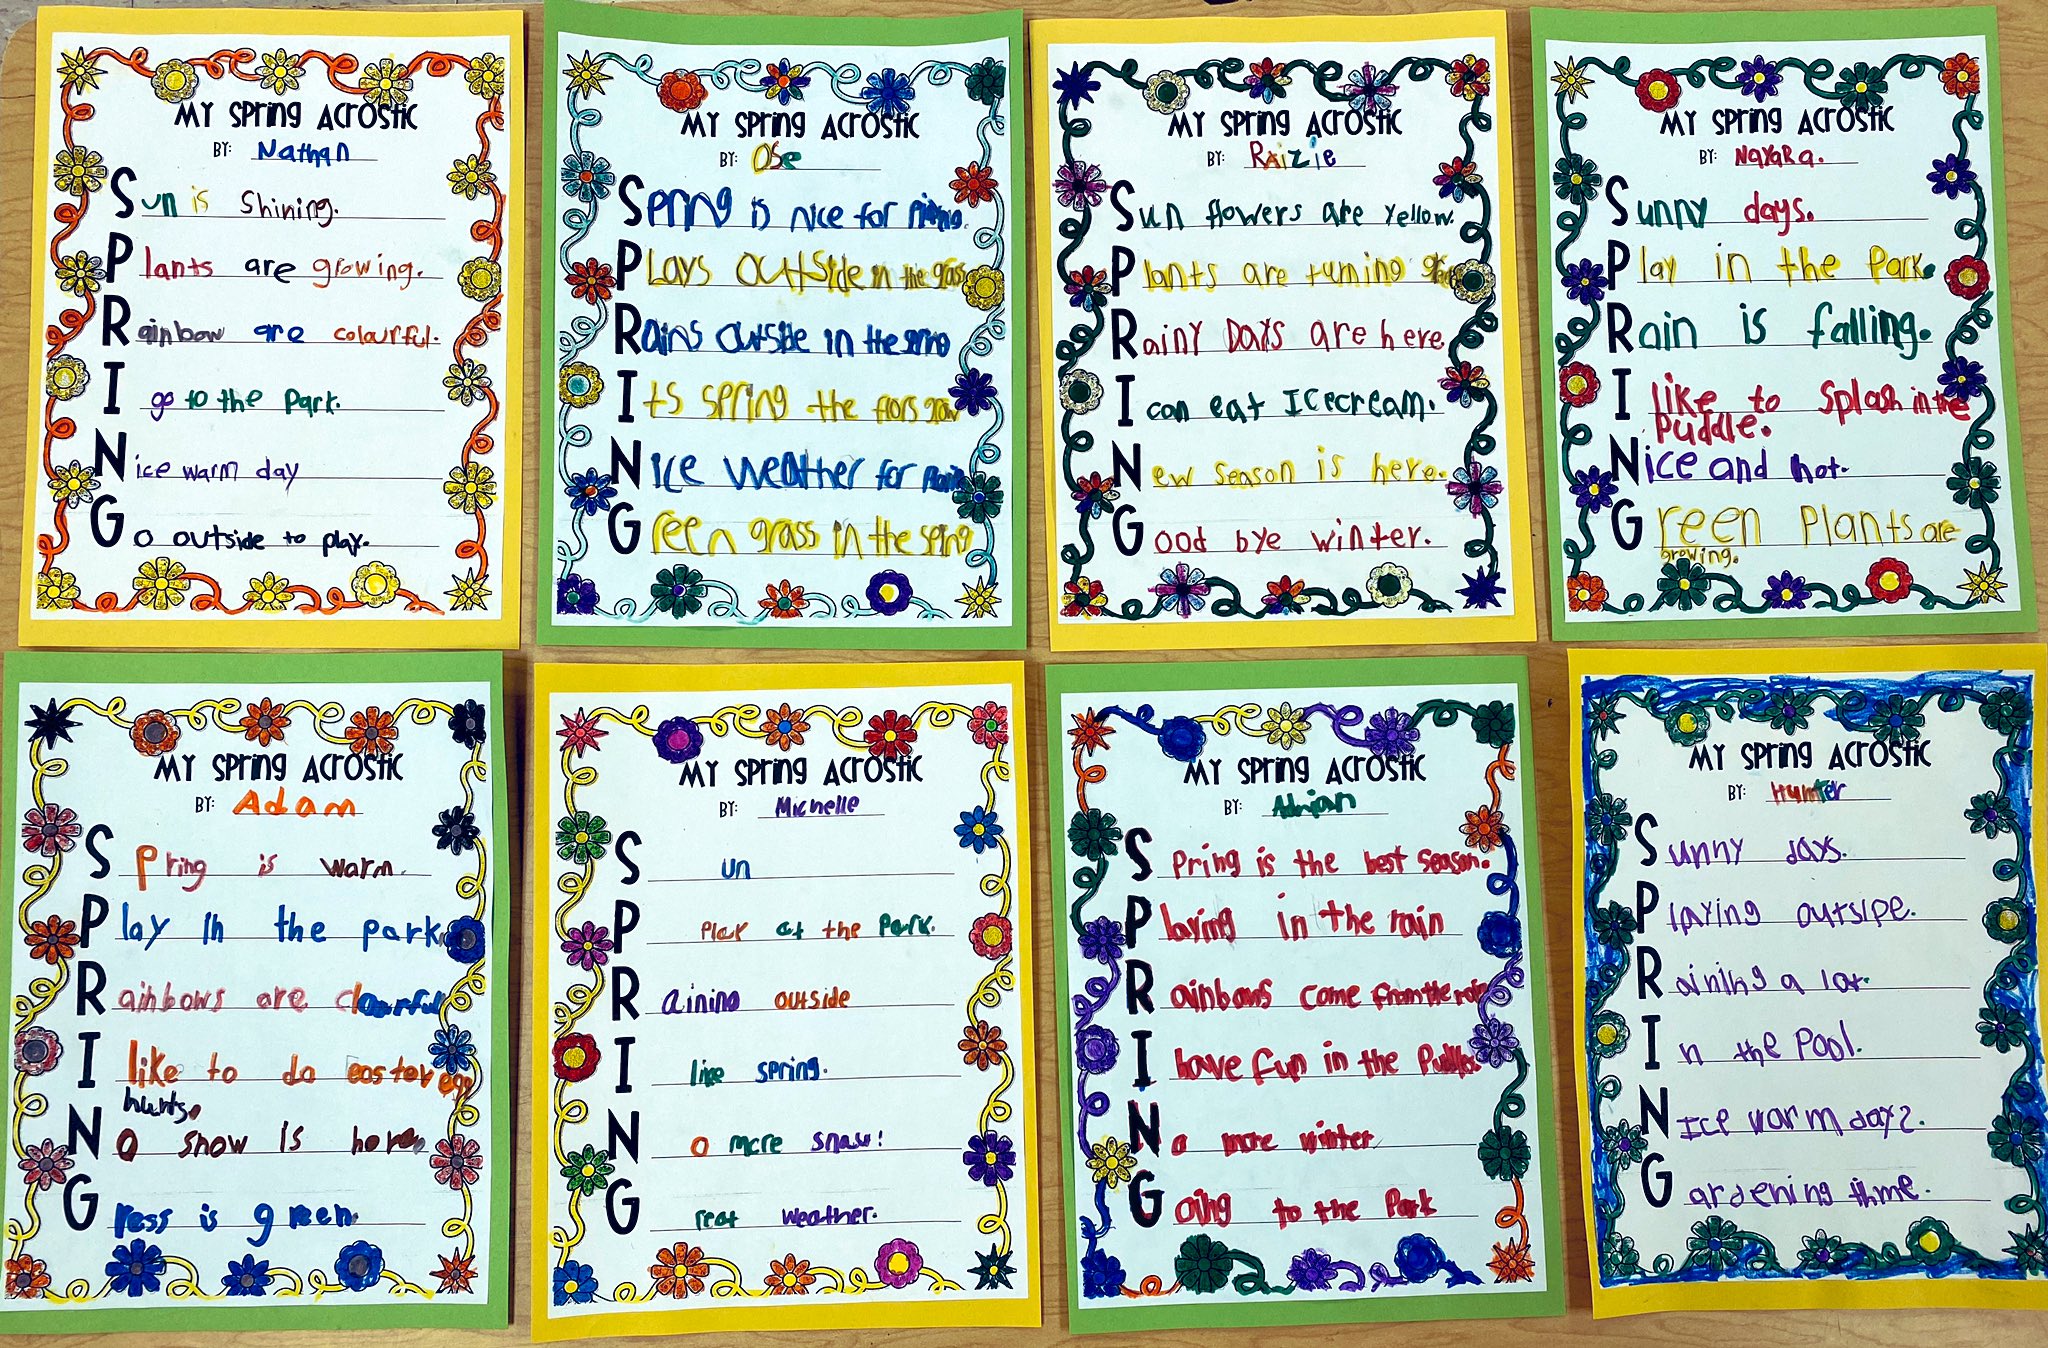 My Spring Acrostic
BY: Nathan
Sun is Shining.
Plants are growing.
Rainbow are colourful.
I go to the Park.
Nice warm day
Go outside to play.
My Spring Acrostic
BY: Ose
Spring is nice for
PLays outside in the grass
Rains outside in the
Its spring the flors grow
Nice weather for
Green grass in the spring
My Spring Acrostic
BY: RAizie
Sun flowers are yellow.
Plants are turning
Rainy Days are here.
I can eat Icecream.
New season is here.
Good bye winter.
My Spring Acrostic
BY: NayaRa.
Sunny days.
Play in the Park.
Rain is falling.
I like to Splash in the
Puddle.
Nice and hot.
Green Plants are
growing.
My Spring Acrostic
BY: Adam
SPring is warm.
Play in the park
Rainbows are
I like to do easter egg
hunts.
No snow is here
Gress is green.
My Spring Acrostic
BY: Michelle
Sun
Play at the Park.
Raining outside
I like spring.
No more snow!
Great weather.
My Spring Acrostic
BY: Adrian
SPring is the best season.
Playing in the rain
Rainbows come from the rain
I have fun in the Puddles.
No more winter
Going to the Park
My Spring Acrostic
BY: Hunter
Sunny days.
Playing outside.
Raining a lot.
In the Pool.
NIce warm days.
Gardening time.